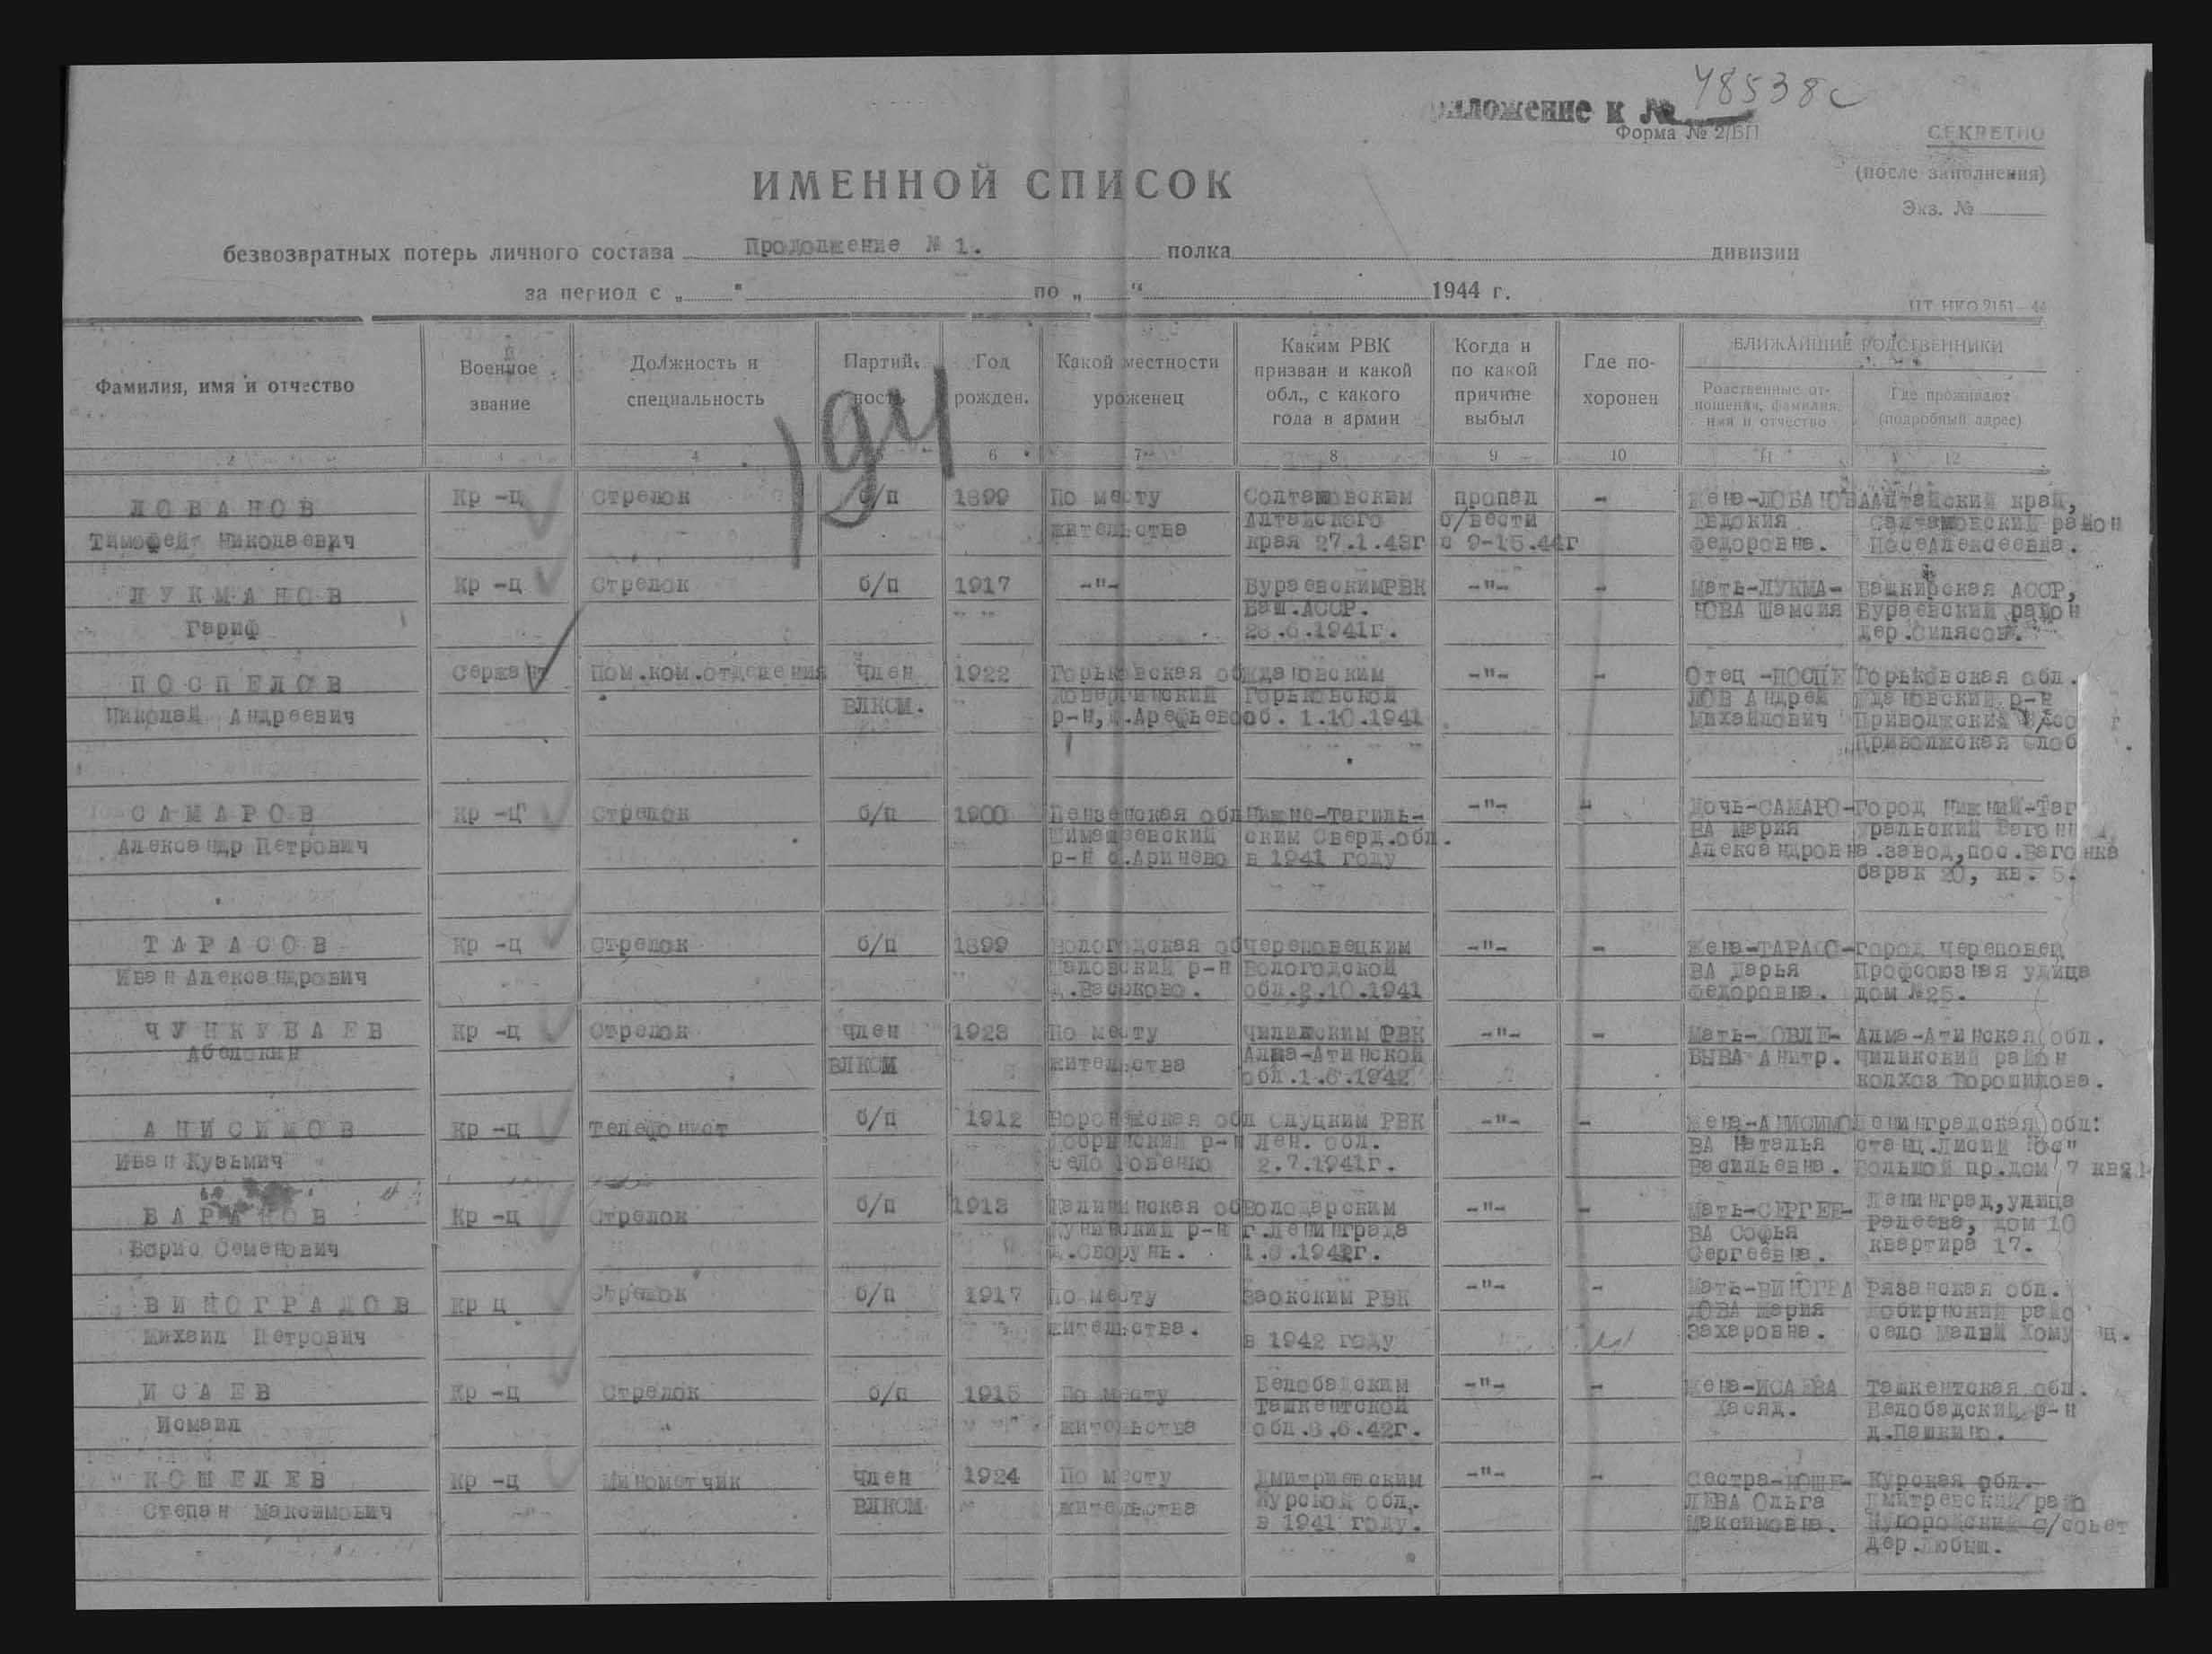 48538с
Приложение к №
Форма № 2/БП
СЕКРЕТНО
(после заполнения)
Экз. №
ИМЕННОЙ СПИСОК
безвозвратных потерь личного состава Продолжение № 1. полка дивизии
за период с „ “ по „ “ 1944 г.
194
Фамилия, имя и отчество
Военное звание
Должность и специальность
Партийность
Год рожден.
Какой местности уроженец
Каким РВК призван и какой обл., с какого года в армии
Когда и по какой причине выбыл
Где похоронен
БЛИЖАЙШИЕ РОДСТВЕННИКИ
Родственные отношения, фамилия, имя и отчество
Где проживают (подробный адрес)
2 3 4 6 7 8 9 10 11 12
ЛОБАНОВ Кр-ц Стрелок б/п 1899 По месту Солтамовским пропал - Жена-ЛОБАНОВА Алтайский край,
жительства Алтайского б/вести Евдокия Салтамовский район
Тимофей Николаевич края 27.1.43г с 9-15.44г Федоровна.
ЛУКМАНОВ Кр-ц Стрелок б/п 1917 -"- Бураевским РВК -"- - Мать-ЛУКМА- Башкирская АССР,
Баш.АССР. НОВА Шамсия Бураевский район
Гариф 28.6.1941г. дер.
ПОСПЕЛОВ Сержант Пом.ком.отделения Член 1922 Горьковская об Ждановским -"- - Отец-ПОСПЕ Горьковская обл.
ВЛКСМ. Горьковской ЛОВ Андрей Ждановский р-н
Николай Андреевич р-н, д.Арефьево об. 1.10.1941 Михайлович Приволжский
Приволжская слоб
САМАРОВ Кр-ц Стрелок б/п 1900 Пензенская обл Нижне-Тагиль- -"- - Дочь-САМАРО- город Нижний-Таг
ским Сверд.обл. ВА Мария Уральский Вагон
Александр Петрович р-н с.Аринево в 1941 году Александровна. завод,пос.Вагонка
барак 20, кв. 5.
ТАРАСОВ Кр-ц Стрелок б/п 1899 Вологодская об Череповецким -"- - Жена-ТАРАСО- город Череповец
р-н Вологодской ВА Дарья Профсоюзная улица
Иван Александрович д.Васьково. обл.2.10.1941 Федоровна. дом №25.
ЧУНКУБАЕВ Кр-ц Стрелок член 1923 По месту Чиликским РВК -"- - Мать- Алма-Атинская обл.
ВЛКСМ жительства Алма-Атинской Чиликский район
обл.1.6.1942 колхоз Ворошилова.
АНИСИМОВ Кр-ц Телефонист б/п 1912 Воронежская обл Слуцким РВК -"- - Жена-АНИСИМО Ленинградская обл:
Добринский р-н Лен. обл. ВА Наталья станц.Лисий Нос"
Иван Кузьмич село 2.7.1941г. Васильевна. Большой пр.дом 7 кв
БАРАНОВ Кр-ц Стрелок б/п 1913 Калининская об Володарским -"- - Мать-СЕРГЕЕ- Ленинград,улица
р-н г.Ленинграда ВА Софья дом 10
Борис Семенович Сергеевна. квартира 17.
ВИНОГРАДОВ Кр ц Стрелок б/п 1917 По месту Заокским РВК -"- - Мать-ВИНОГРА Рязанская обл.
жительства. ДОВА Мария
Михаил Петрович в 1942 году Захаровна. село Малый
ИСАЕВ Кр-ц Стрелок б/п 1915 По месту -"- - Жена-ИСАЕВА Ташкентская обл.
Исмаил жительства Ташкентской р-н
обл.3.6.42г. д.Пашкино.
КОШЕЛЕВ Кр-ц Минометчик член 1924 По месту Дмитриевским -"- - Сестра-КОШЕ- Курская обл.
ВЛКСМ жительства Курской обл. ЛЕВА Ольга Дмитревский райо
Степан Максимович в 1941 году. Максимовна. с/совет
дер.Любыш.